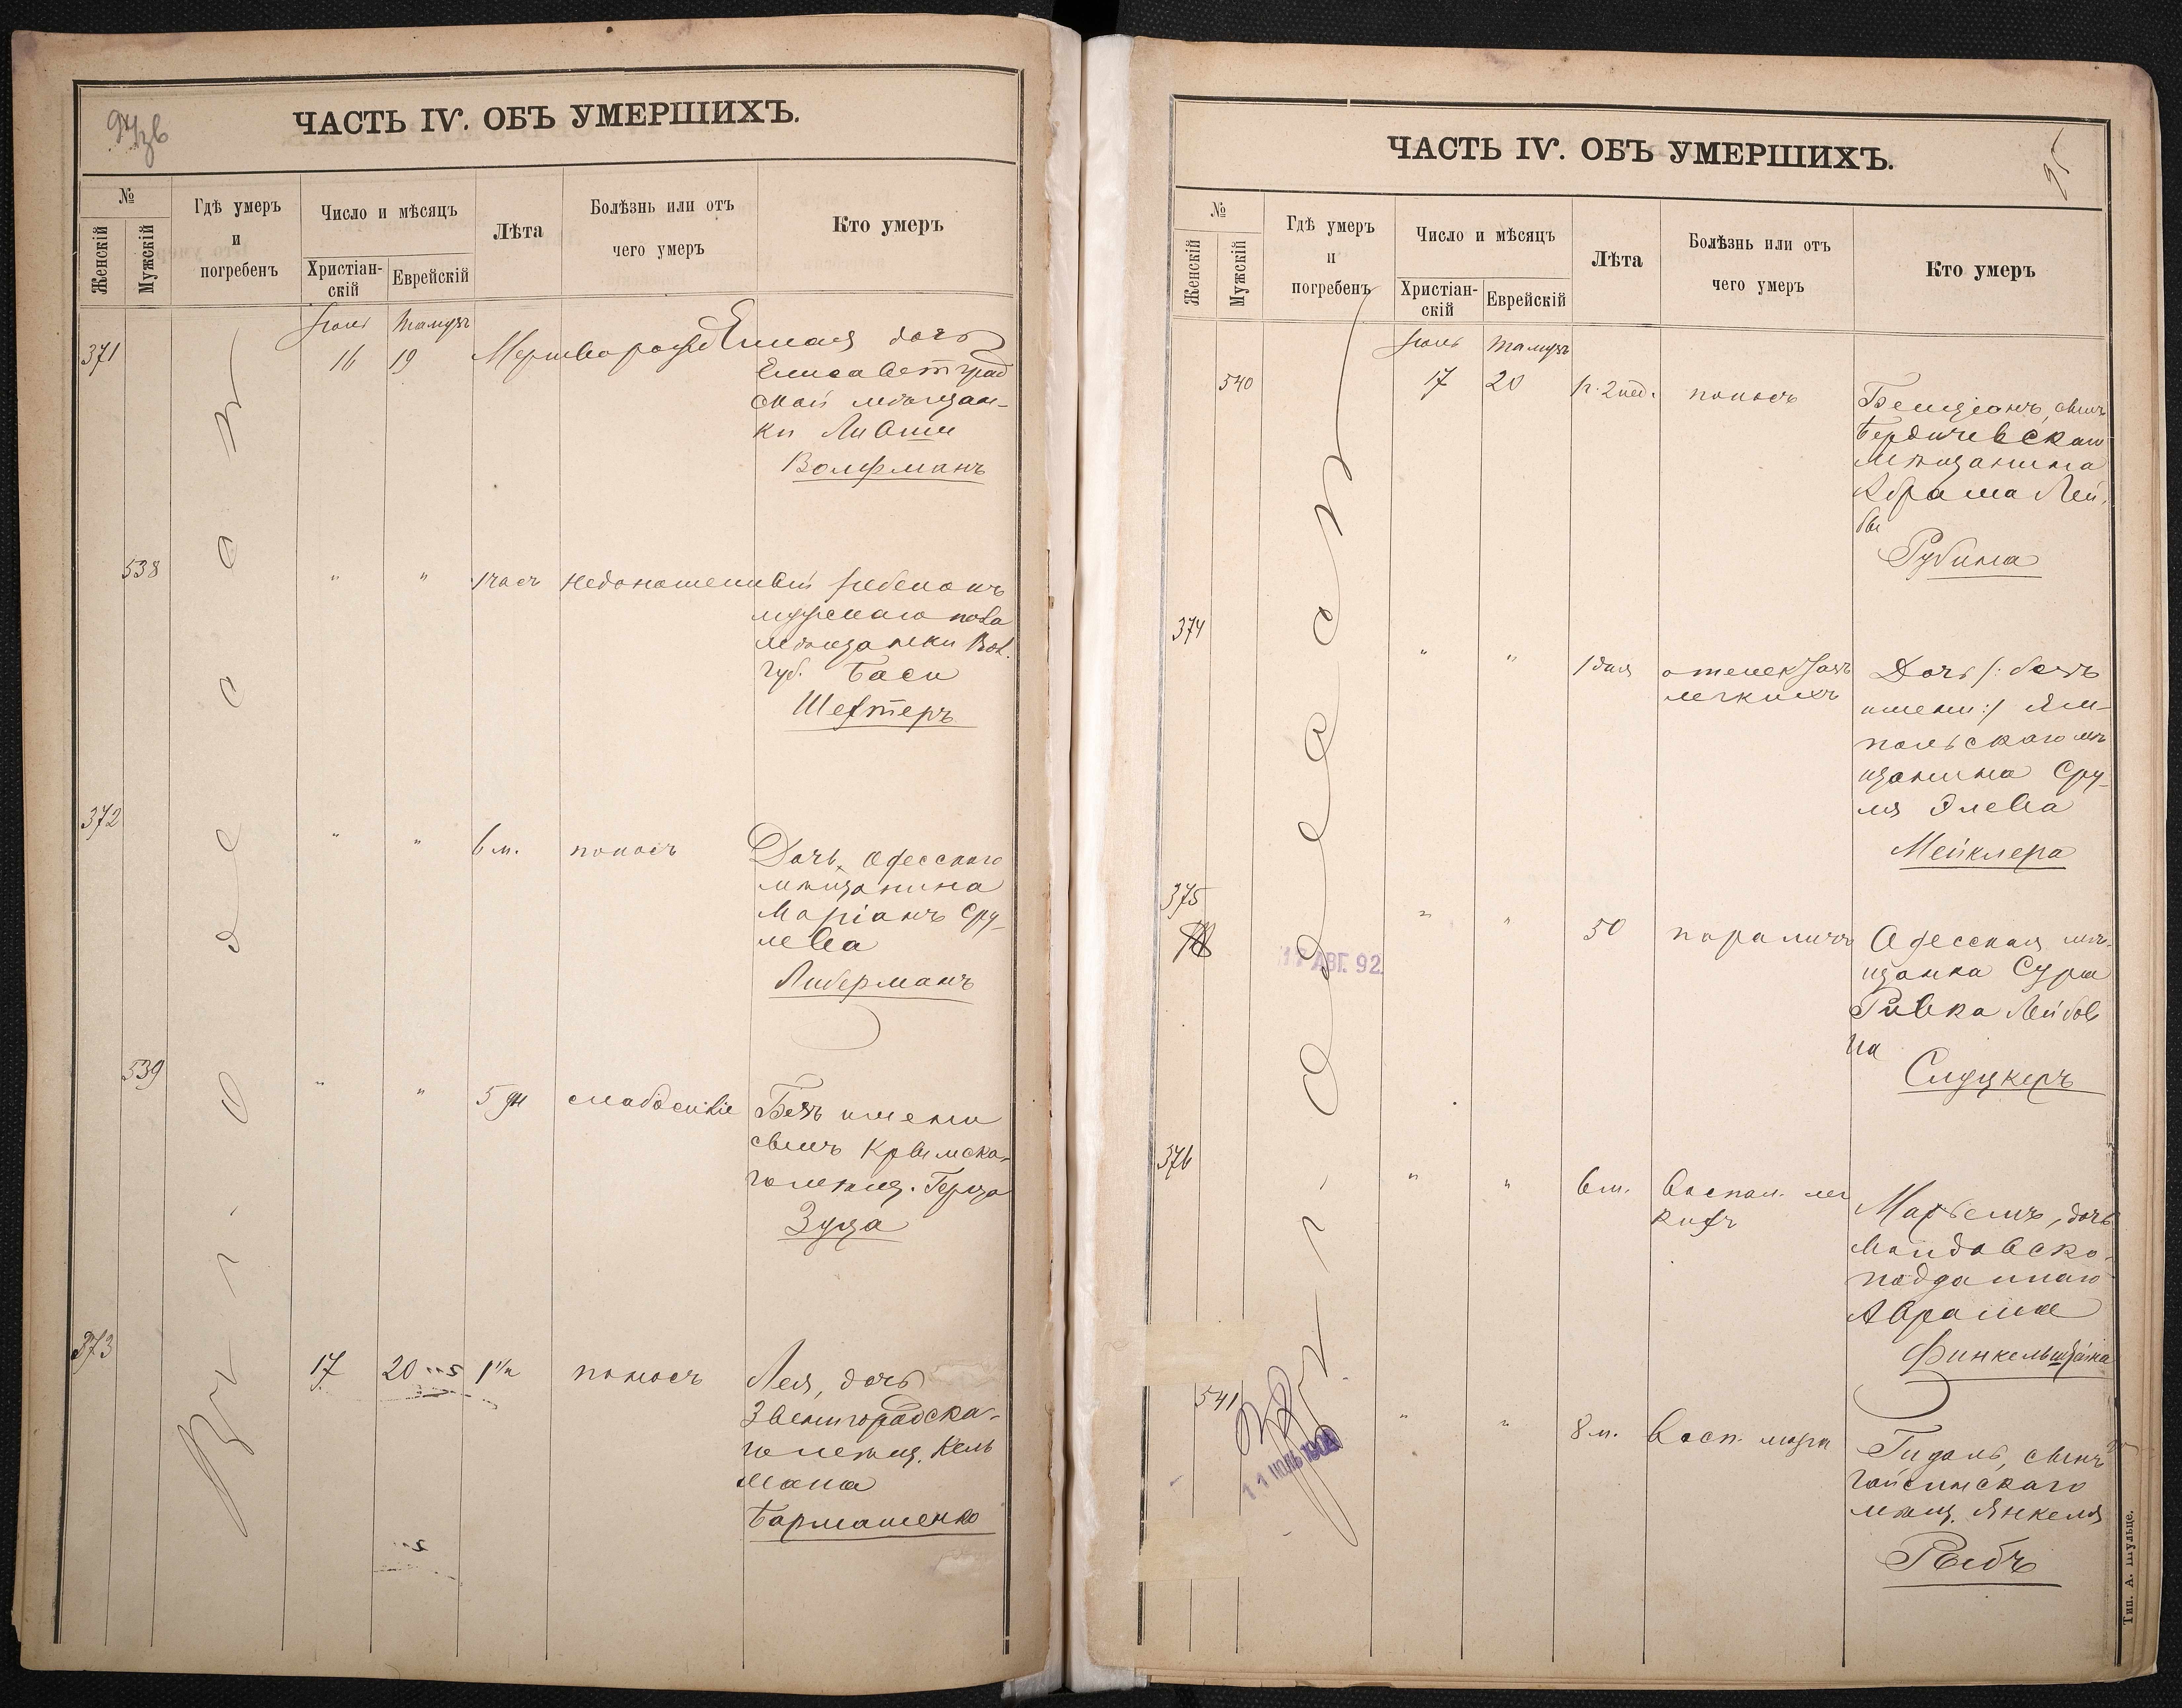 ЧАСТЬ IV. ОБЪ УМЕРШИХЪ.
№
Женскій
Мужскій
Гдѣ умеръ
и
погребенъ
Число и мѣсяцъ
Христіан-
скій
Еврейскій
Лѣта
Болѣзнь или отъ
чего умеръ
Кто умеръ
Тамузъ
371
16
19
Мертворожденная дочь
Елисаветград
ской мѣщан-
ки
Волфманъ
въ г. Одессѣ
538
"
"
1 часъ
недоношенный ребенокъ
мужскаго пола
мѣщанки Вол.
губ. Баси
Шехтеръ
372
"
"
6 м.
поносъ
Дочь Одесскаго
мѣщанина
Маріамъ Сру-
лева
Либерманъ
539
"
"
5 дн
слабосиліе
Безъ имени
сынъ Крымска-
го мѣщ. Герца
Зуца
373
17
20
1 1/2
поносъ
Лея, дочь
Звенигородска-
го мѣщ. Кель
мана
Бармашенко
ЧАСТЬ IV. ОБЪ УМЕРШИХЪ.
95
№
Женскій
Мужскій
Гдѣ умеръ
и
погребенъ
Число и мѣсяцъ
Христіан-
скій
Еврейскій
Лѣта
Болѣзнь или отъ
чего умеръ
Кто умеръ
Тамузъ
540
17
20
поносъ
Бенціонъ, сынъ
Бердичевскаго
мѣщанина
Абрама Лей-
бы
Рубина
374
"
"
1 день
легкихъ
Дочь /: безъ
имени :/ Ям-
польскаго мѣ
щанина Сру-
ля Элева
Мейклера
375
"
"
50
параличъ
Одесская мѣ-
щанка Сура
Ривка Лейбов
на
Слуцкеръ
17 АВГ. 92
376
"
"
6 м.
воспал. лег
кихъ
дочь
подданнаго
Аврама
Финкельштейна
541
"
"
8 м.
Восп. мозга
11 1904
Гидаль, сынъ
Гайсинскаго
мѣщ. Янкеля
Рыбъ
Тип. А. Шульце.